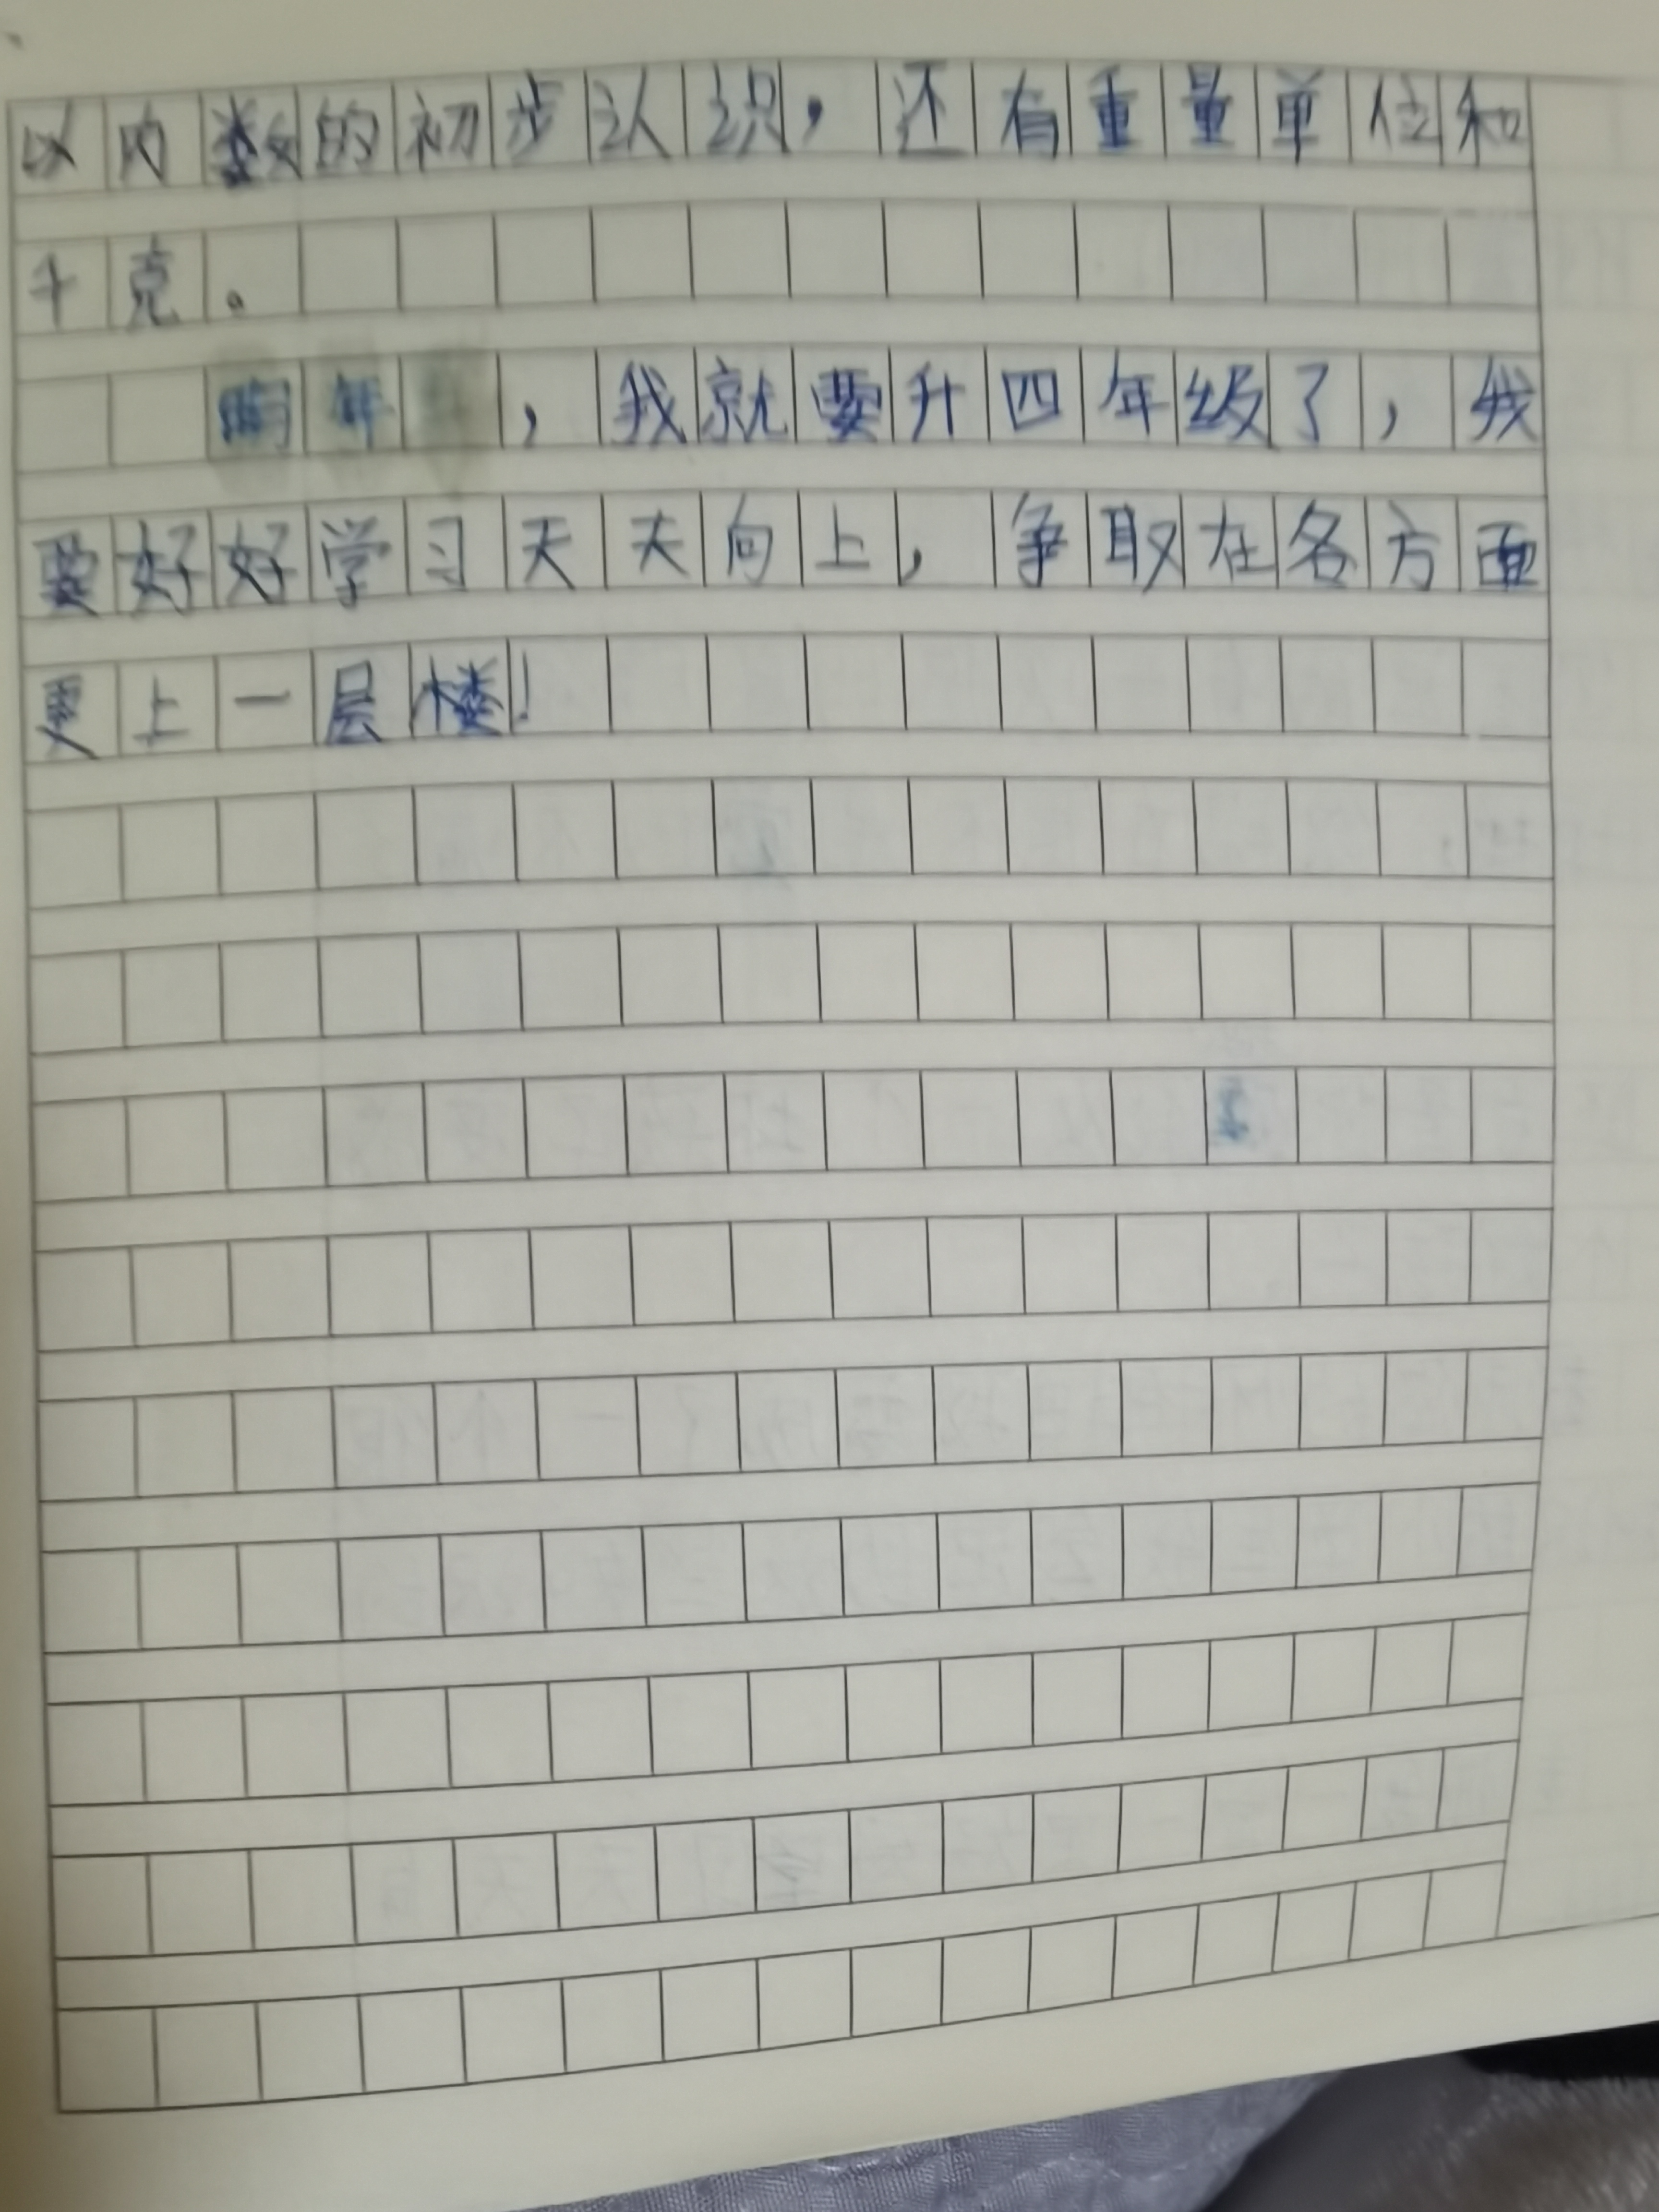 以内数的初步认识，还有重量单位和
千克。
明年，我就要升四年级了，我
要好好学习天天向上，争取在各方面
更上一层楼！